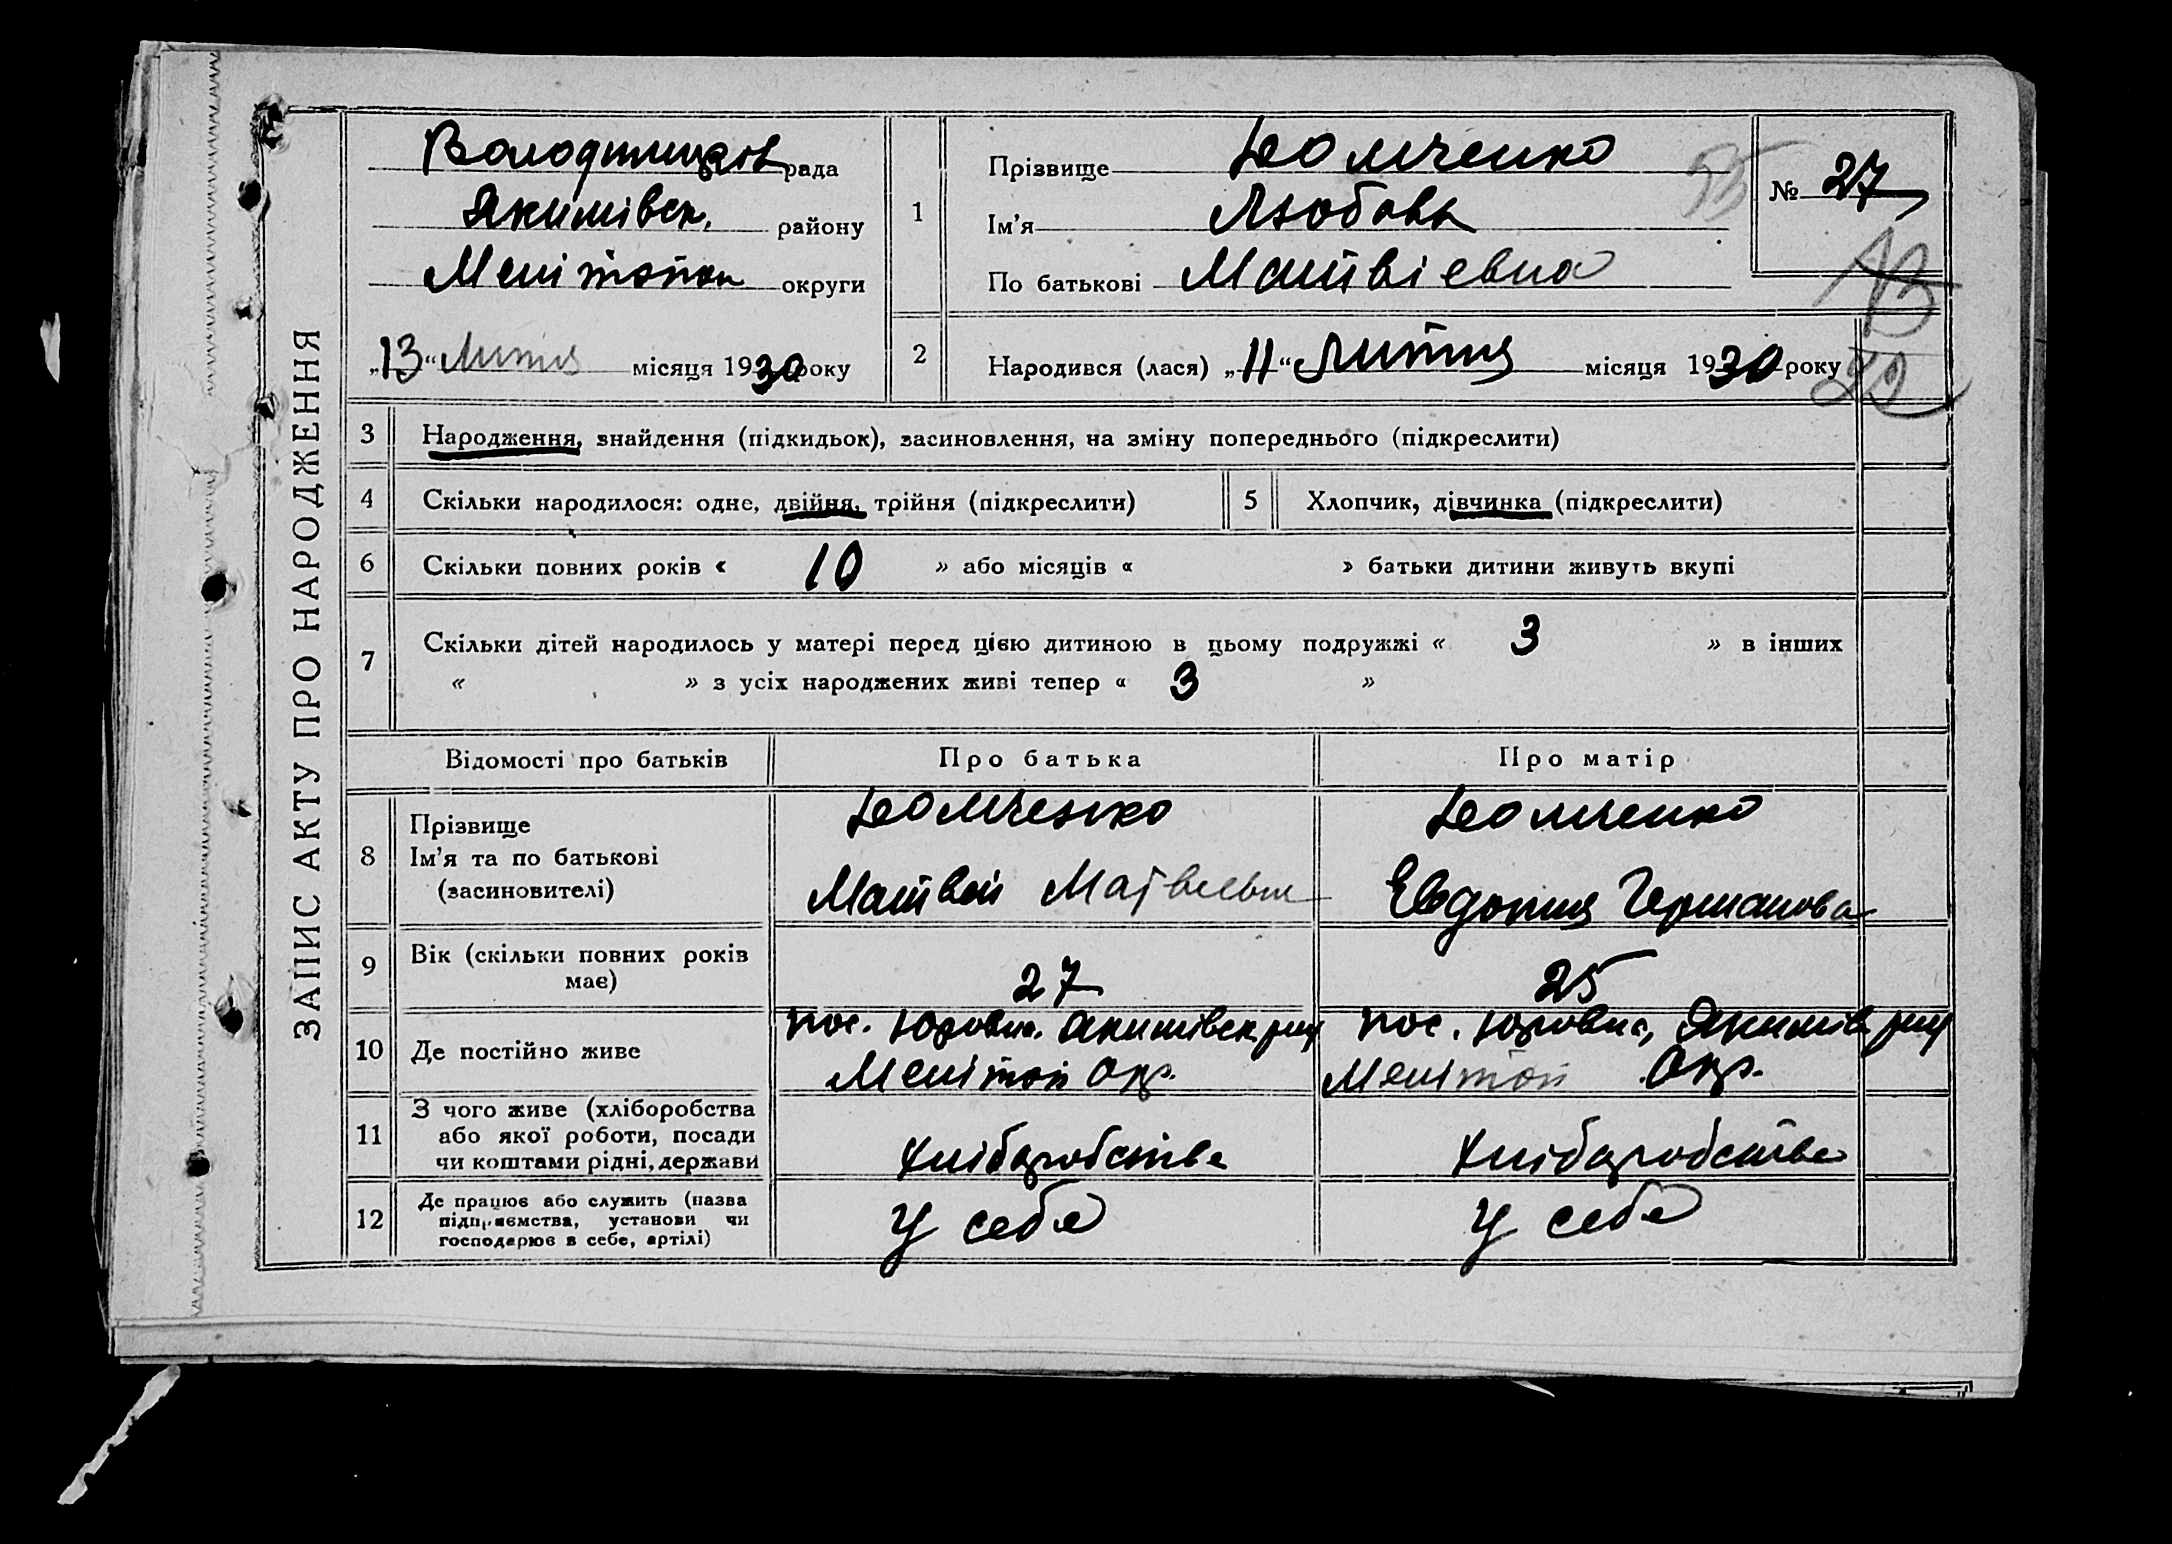 ЗАПИС АКТУ ПРО НАРОДЖЕННЯ
рада
Якимівськ. району
Мелітопол округи
„13“ Лютия місяця 1930 року
1
Прізвище
Ім'я Любовь
По батькові Матвіевна
№ 27
2
Народився (лася) „11“ Лютия місяця 1930 року
3 Народження, знайдення (підкидьок), засиновлення, на зміну попереднього (підкреслити)
4 Скільки народилося: одне, двійня, трійня (підкреслити)
5 Хлопчик, дівчинка (підкреслити)
6 Скільки повних років « 10 » або місяців « » батьки дитини живуть вкупі
7 Скільки дітей народилось у матері перед цією дитиною в цьому подружжі « 3 » в інших
« » з усіх народжених живі тепер « 3 »
Відомості про батьків Про батька Про матір
8 Прізвище
Ім'я та по батькові
(засиновителі)
Матвей
Евдокия Германова
9 Вік (скільки повних років
має)
27 25
10 Де постійно живе
пос. Якимівск
Мелітоп Окр.
пос. Якимів
Мелітоп Окр.
11 З чого живе (хліборобства
або якої роботи, посади
чи коштами рідні, держави
хліборобство хліборобство
12 Де працює або служить (назва
підприємства, установи чи
господарює в себе, артілі)
У себе У себе